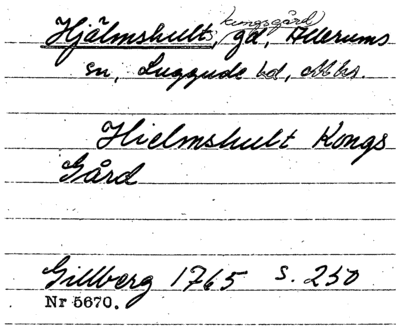 kungsgård
Hjälmshult, gd, Allerums
sn, Luggude hd, Mbhs.
Hielmshult Kongs
Gård
Gillberg 1765 s. 250
Nr 5670.